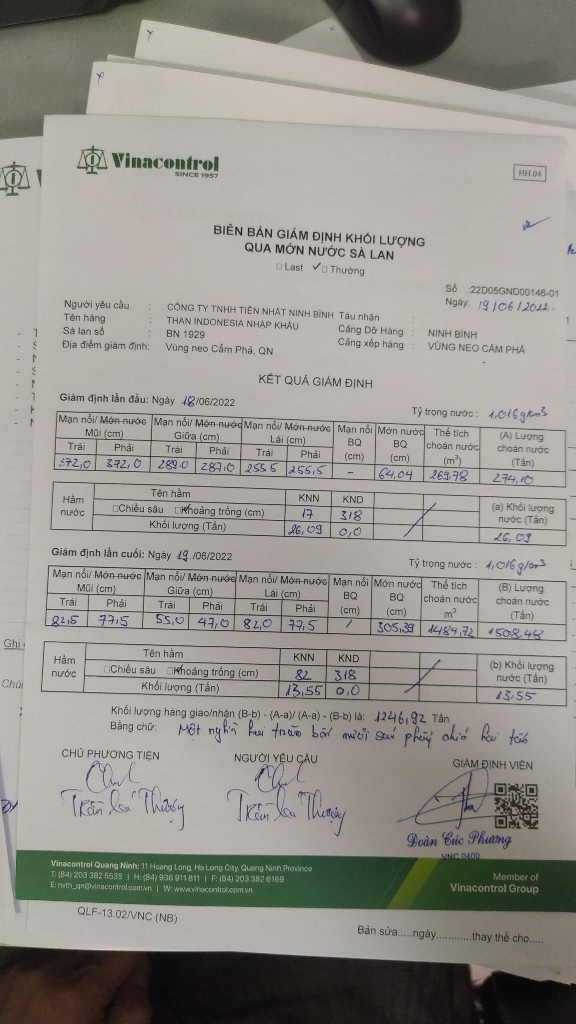 Vinacontrol
SINCE 1957
HH.04
BIÊN BẢN GIÁM ĐỊNH KHỐI LƯỢNG
QUA MỚN NƯỚC SÀ LAN
□ Last ✓□ Thường
Số :22D05GND00146-01
Ngày: 19/06/2022.
Người yêu cầu : CÔNG TY TNHH TIẾN NHẤT NINH BÌNH Tàu nhận :
Tên hàng : THAN INDONESIA NHẬP KHẨU Cảng Dỡ Hàng : NINH BÌNH
Sà lan số : BN 1929 Cảng xếp hàng : VÙNG NEO CẨM PHẢ
Địa điểm giám định: Vùng neo Cẩm Phả, QN
KẾT QUẢ GIÁM ĐỊNH
Giám định lần đầu: Ngày 18/06/2022 Tỷ trọng nước : 1,016g/cm3
Mạn nổi/ Mớn nước Mũi (cm) Mạn nổi/ Mớn nước Giữa (cm) Mạn nổi/ Mớn nước Lái (cm) Mạn nổi BQ (cm) Mớn nước BQ (cm) Thể tích choán nước (m³) (A) Lượng choán nước (Tấn)
Trái Phải Trái Phải Trái Phải
372,0 372,0 289,0 287,0 255,5 255,5 - 64,04 269,78 274,10
Hầm nước Tên hầm KNN KND (a) Khối lượng nước (Tấn)
□Chiều sâu □Khoảng trống (cm) 17 318
Khối lượng (Tấn) 26,09 0,0 26,09
Giám định lần cuối: Ngày 19./06/2022 Tỷ trọng nước : 1,016g/cm3
Mạn nổi/ Mớn nước Mũi (cm) Mạn nổi/ Mớn nước Giữa (cm) Mạn nổi/ Mớn nước Lái (cm) Mạn nổi BQ (cm) Mớn nước BQ (cm) Thể tích choán nước m³ (B) Lượng choán nước (Tấn)
Trái Phải Trái Phải Trái Phải
82,5 77,5 55,0 47,0 82,0 77,5 / 305,39 1484,72 1508,48
Hầm nước Tên hầm KNN KND (b) Khối lượng nước (Tấn)
□Chiều sâu □Khoảng trống (cm) 82 318
Khối lượng (Tấn) 13,55 0,0 13,55
Khối lượng hàng giao/nhận (B-b) - (A-a)/ (A-a) - (B-b) là: 1246,92 Tấn
Bằng chữ: Một nghìn hai trăm bốn mươi sáu phẩy chín hai tấn
CHỦ PHƯƠNG TIỆN NGƯỜI YÊU CẦU GIÁM ĐỊNH VIÊN
Đoàn Cúc Phương
VNC 0400
Vinacontrol Quang Ninh: 11 Hoang Long, Ha Long City, Quang Ninh Province
T: (84) 203 382 5535 | H: (84) 936 911 811 | F: (84) 203 382 6169
E: nvth_qn@vinacontrol.com.vn | W: www.vinacontrol.com.vn
Member of
Vinacontrol Group
QLF-13.02/VNC (NB)
Bản sửa.....ngày............thay thế cho.....